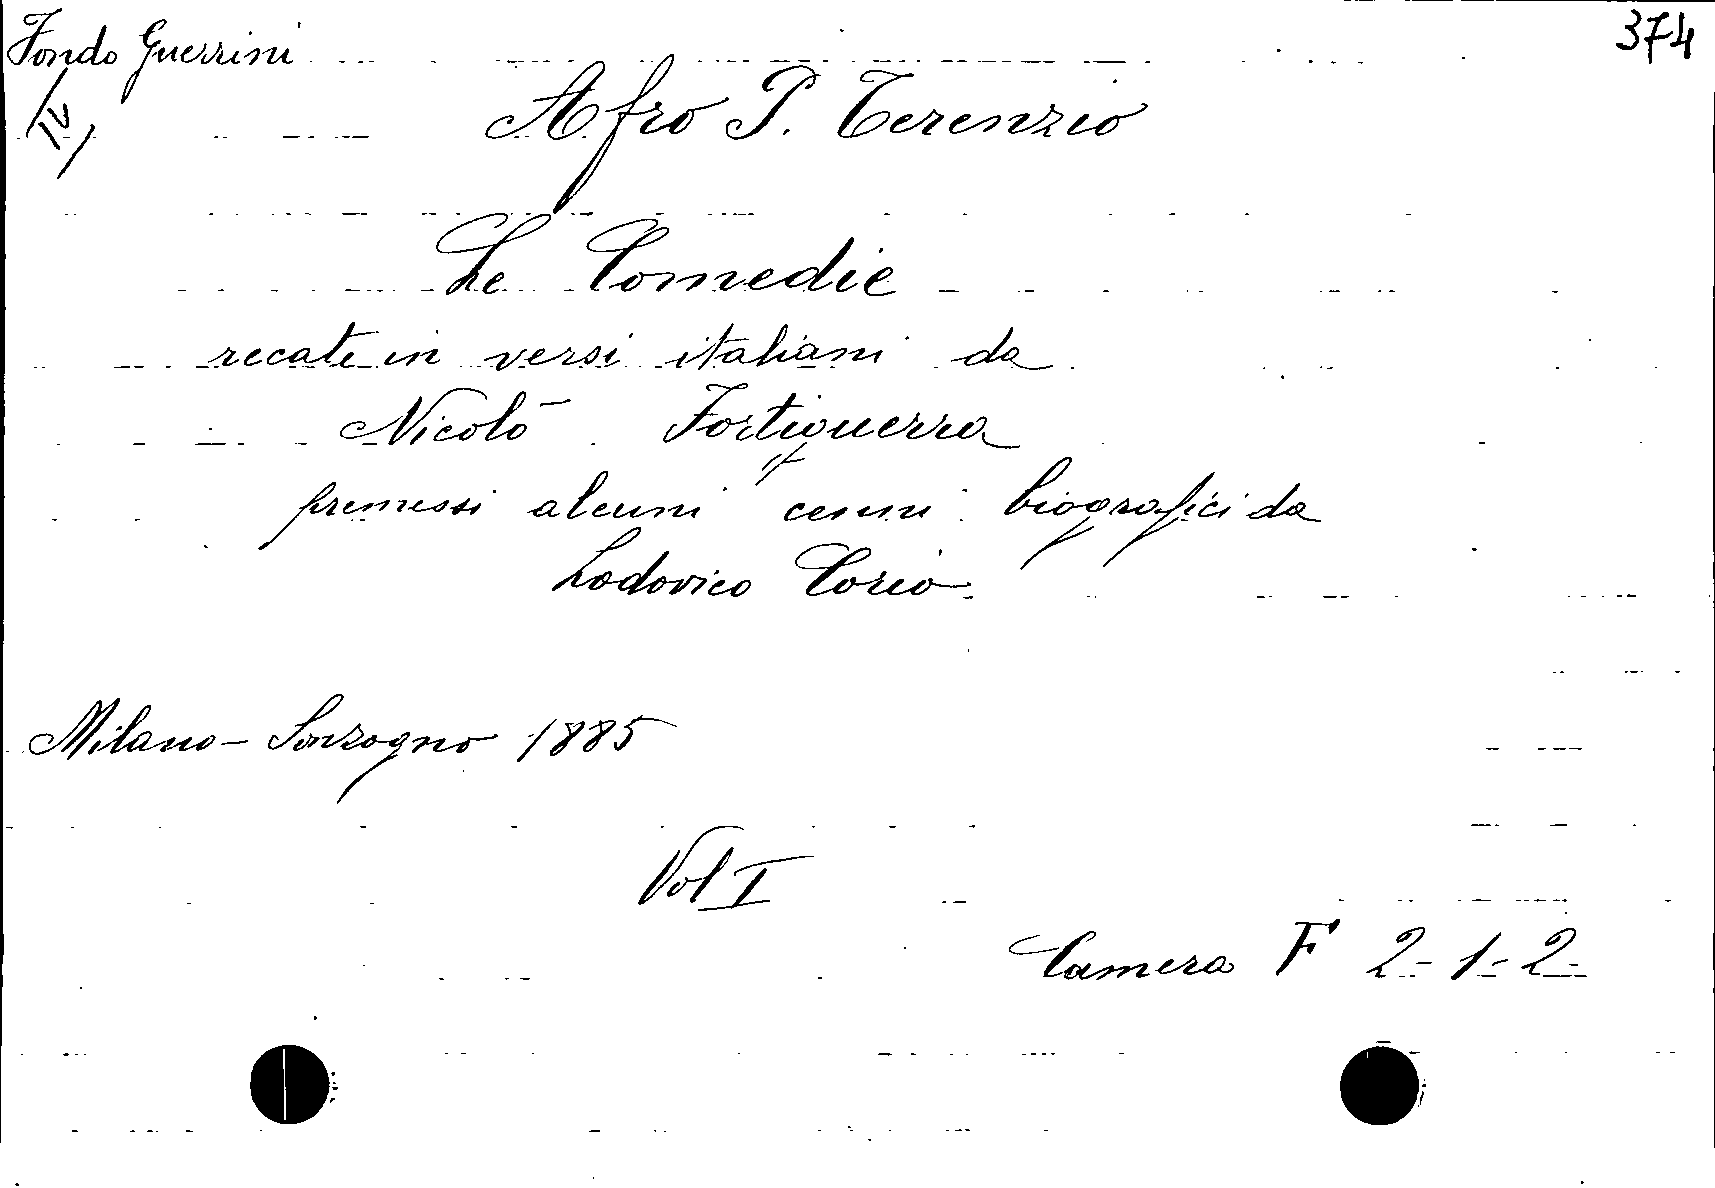 Fondo Guerrini
374
IV
Afro P. Terenzio
Le Comedie
recate in versi italiani da
Nicolò Fortiguerra
premessi alcuni cenni biografici da
Lodovico Corio
Milano - Sonzogno 1885
Vol I
Camera F 2-1-2-